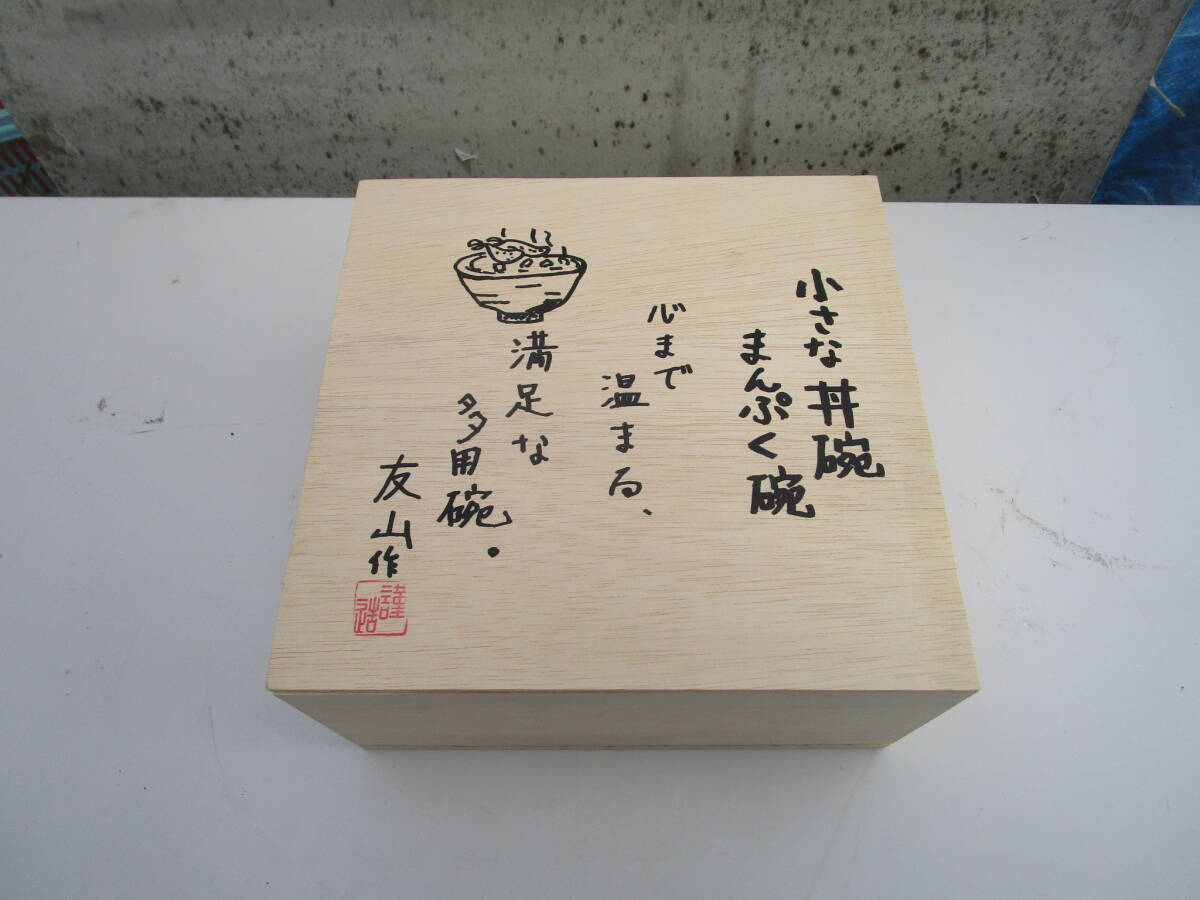 小さな丼碗
まんぷく碗
心まで
温まる、
満足な
多用碗。
友山作
謹造